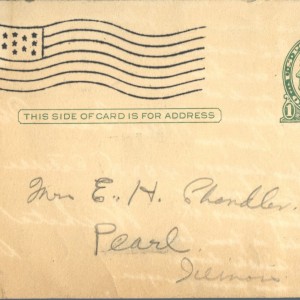 THIS SIDE OF CARD IS FOR ADDRESS
1
Mrs E. H. Chandler.
Pearl.
Illinois.